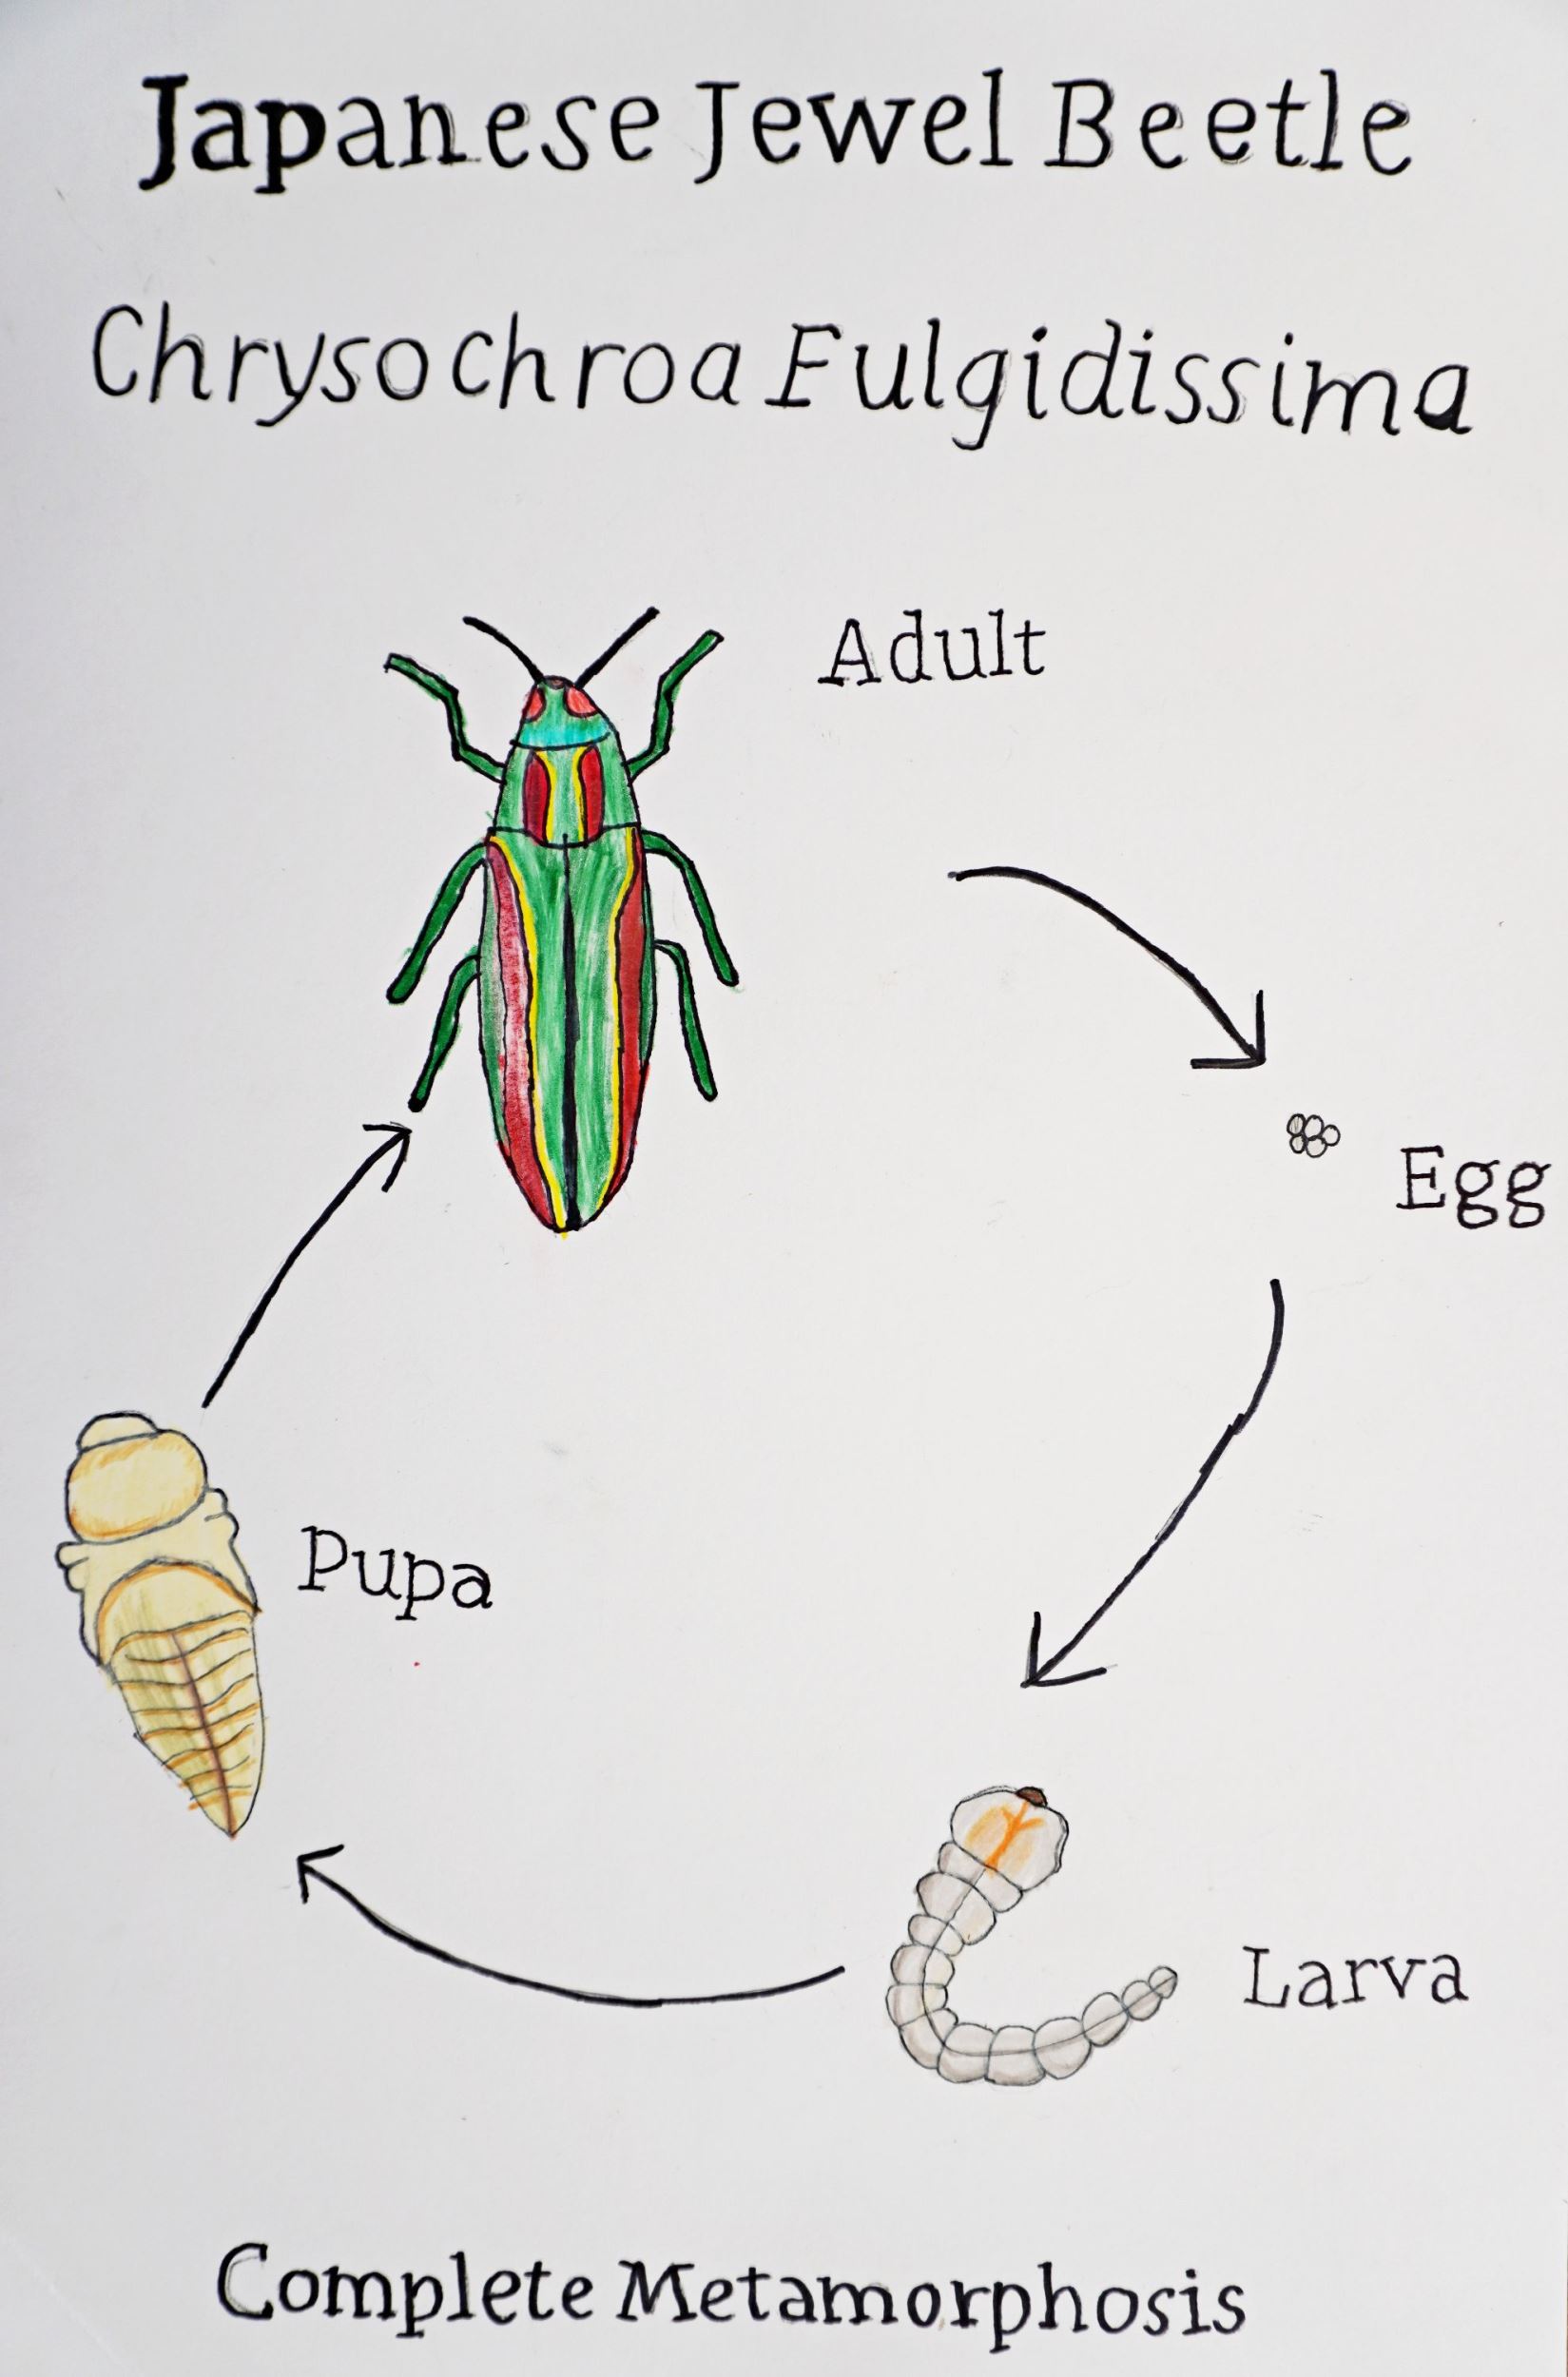 Japanese Jewel Beetle
Chrysochroa Fulgidissima
Adult
Egg
Pupa
Larva
Complete Metamorphosis